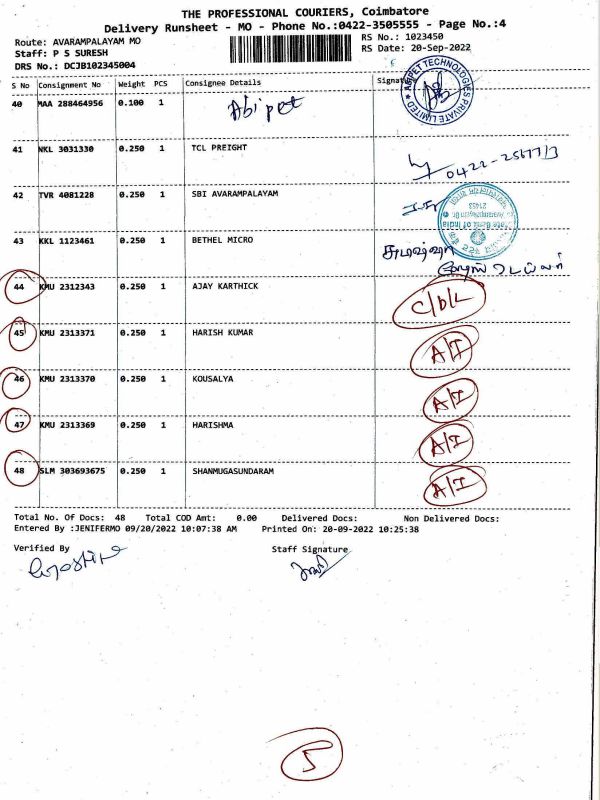 THE PROFESSIONAL COURIERS, Coimbatore
Delivery Runsheet - MO - Phone No.:0422-3505555 - Page No.:4
Route: AVARAMPALAYAM MO
RS No.: 1023450
Staff: P S SURESH
RS Date: 20-Sep-2022
DRS No.: DCJB102345004
S No Consignment No Weight PCS Consignee Details Signature
40 MAA 288464956 0.100 1 Abipet
ABIPET TECHNOLOGIES PRIVATE LIMITED
41 NKL 3031330 0.250 1 TCL PREIGHT
42 TVR 4081228 0.250 1 SBI AVARAMPALAYAM
State Bank of India
43 KKL 1123461 0.250 1 BETHEL MICRO
44 KMU 2312343 0.250 1 AJAY KARTHICK C/D/L
45 KMU 2313371 0.250 1 HARISH KUMAR A/I
46 KMU 2313370 0.250 1 KOUSALYA A/I
47 KMU 2313369 0.250 1 HARISHMA A/I
48 SLM 303693675 0.250 1 SHANMUGASUNDARAM A/I
Total No. Of Docs: 48 Total COD Amt: 0.00 Delivered Docs: Non Delivered Docs:
Entered By :JENIFERMO 09/20/2022 10:07:38 AM Printed On: 20-09-2022 10:25:38
Verified By Staff Signature
5